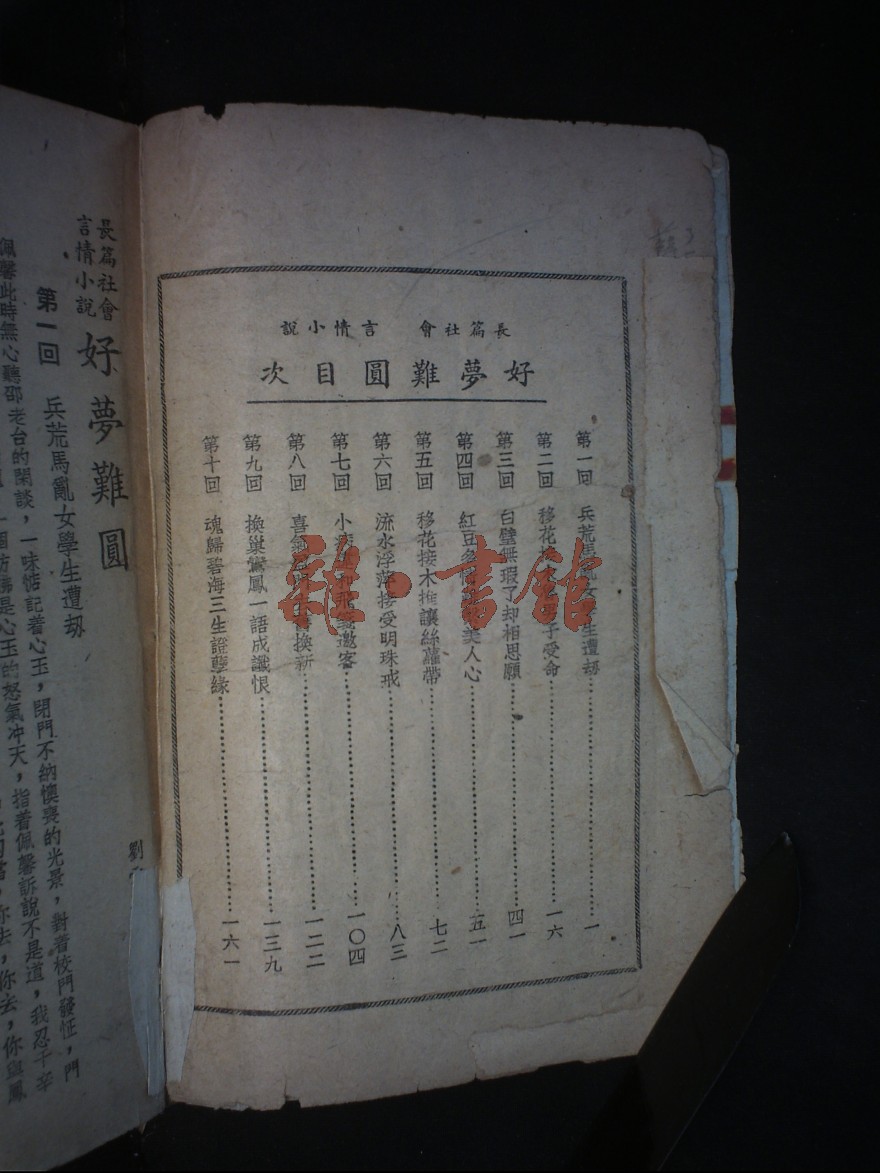 長篇社會 言情小說
好夢難圓目次
第一回 兵荒馬亂女學生遭刼……一
第二回 移花接木 子受命……一六
第三回 白璧無瑕了却相思願……四一
第四回 紅豆多情 美人心……五一
第五回 移花接木推讓絲蘿帶……七二
第六回 流水浮萍接受明珠戒……八三
第七回 小 邀客……一〇四
第八回 喜 換新……一二二
第九回 換巢鸞鳳一語成讖恨……一三九
第十回 魂歸碧海三生證孽緣……一六一
雜·書館
長篇社會
言情小說
好夢難圓
劉
第一回 兵荒馬亂女學生遭刼
佩馨此時無心聽邵老台的閑談，一味惦記着心玉，閉門不納懊喪的光景，對着校門發怔，門
是心玉的怒氣冲天，指着佩馨訴說不是道，我忍千辛
你去，你去，你